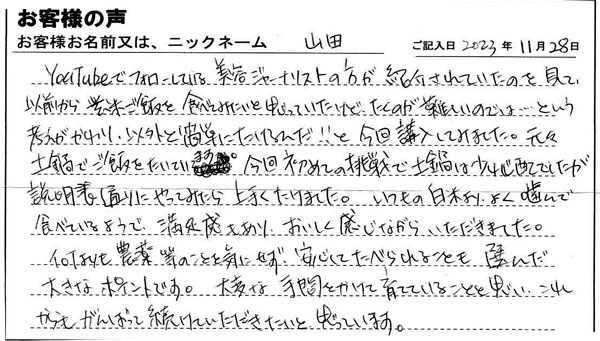 お客様の声
お客様お名前又は、ニックネーム 山田 ご記入日 2023年 11月 28日
YouTubeでフォローしている美容ジャーナリストの方が紹介されていたのを見て
以前から玄米ご飯を食べてみたいと思っていたけど、たくのが難しいのでは…という
考えがかわり、以外と簡単にたけるんだ!!と今回購入してみました。元々
土鍋でご飯をたいてい 今回初めての挑戦で土鍋は少し心配でしたが
説明書通りにやってみたら上手くたけました。いつもの白米より、よく噛んで
食べているようで、満足感もあり、おいしく感じながらいただきました。
何よりも農薬等のことを気にせず、安心してたべられることも選んだ
大きなポイントです。大変な手間をかけて育てていることと思い、これ
からもがんばって続けていただきたいと思っています。